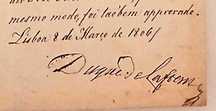 mesmo modo, foi taõbem approvado.
Lisboa 8 de Março de 1806
Duque de Lafoens